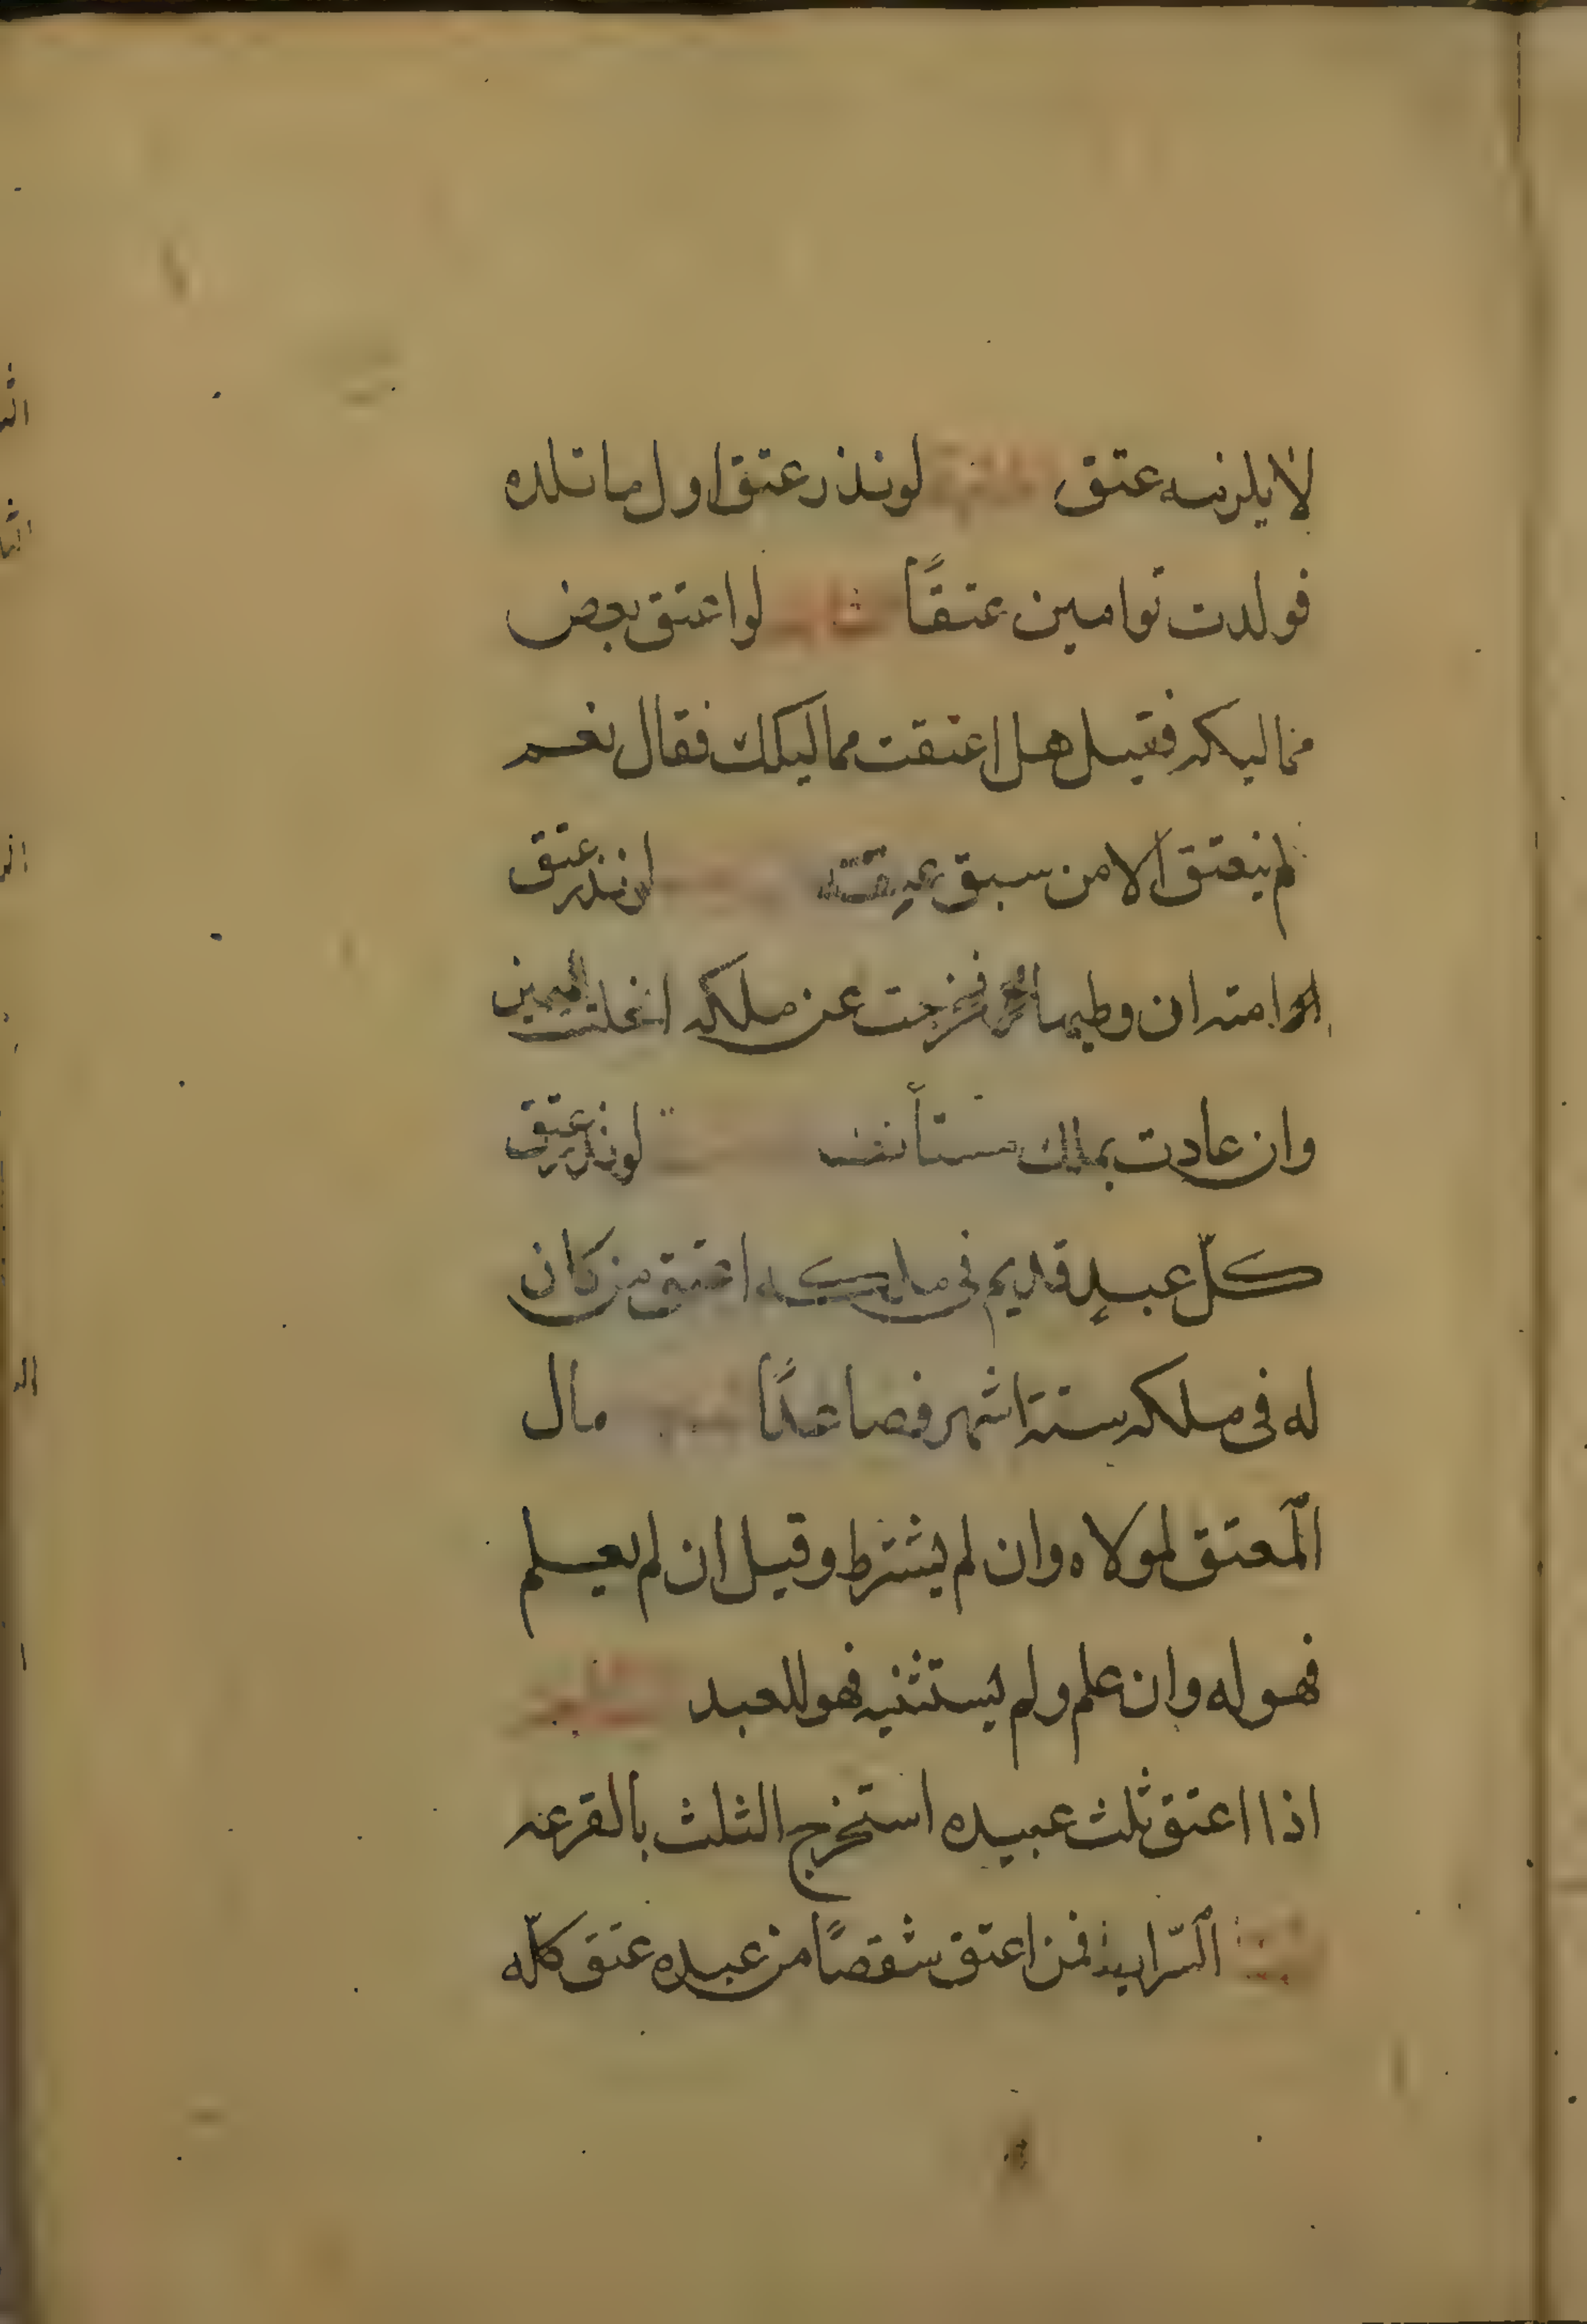 لا يلزمه عتق لو نذر عتق اول ما تلده
فولدت توامين عتقًا لو اعتق بعض
مماليكه فقيل هل اعتقت مماليكك فقال نعم
لم ينعتق الا من سبق عتقه لو نذر عتق
امته ان وطيها فخرجت عن ملكه انحلت اليمين
وان عادت بملك مستأنف لو نذر عتق
كلّ عبدٍ قديم في ملكه اعتق من كان
له في ملكه ستة اشهر فصاعدًا مال
المعتق لمولاه وان لم يشترط وقيل ان لم يعلم
فهو له وان علم ولم يستثنيه فهو للعبد
اذا اعتق ثلث عبيده استخرج الثلث بالقرعه
السّراية فمن اعتق شقصًا من عبده عتق كلّه